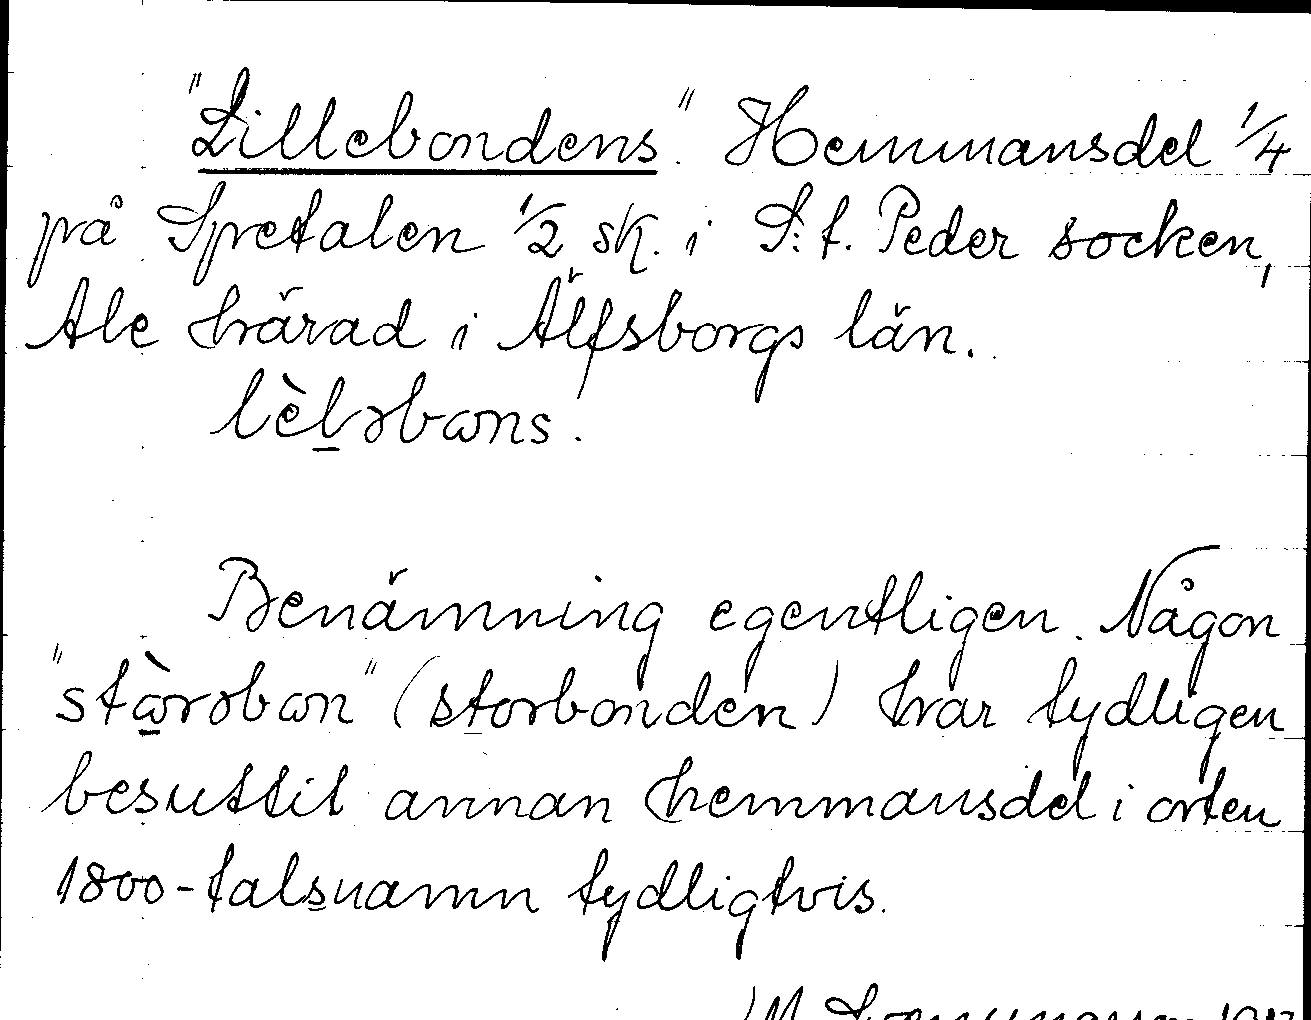 "Lillebondens". Hemmansdel 1/4
på Spretalen 1/2 sk. i S:t. Peder socken,
Ale härad i Älfsborgs län.
lèləbɷns.
Benämning egentligen. Någon
"stɷ̀rəbɷn" (storbonden) har tydligen
besuttit annan hemmansdel i orten
1800-talsnamn tydligtvis.